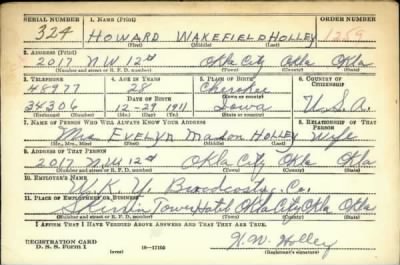 SERIAL NUMBER 1. NAME (Print) ORDER NUMBER
324 HOWARD WAKEFIELD HOLLEY 1259
(First) (Middle) (Last)
2. ADDRESS (Print)
2017 N.W. 12th Okla City Okla Okla
(Number and street or R. F. D. number) (Town) (County) (State)
3. TELEPHONE 4. AGE IN YEARS 5. PLACE OF BIRTH 6. COUNTRY OF CITIZENSHIP
48977 28 Cherokee
DATE OF BIRTH (Town or county)
34306 12-29 1911 Iowa U.S.A.
(Exchange) (Number) (Mo.) (Day) (Yr.) (State or country)
7. NAME OF PERSON WHO WILL ALWAYS KNOW YOUR ADDRESS 8. RELATIONSHIP OF THAT PERSON
Mrs EVELYN Mason HOLLEY Wife
(Mr., Mrs., Miss) (First) (Middle) (Last)
9. ADDRESS OF THAT PERSON
2017 N.W. 12th Okla City Okla Okla
(Number and street or R. F. D. number) (Town) (County) (State)
10. EMPLOYER'S NAME
W.K.Y. Broadcasting Co.
11. PLACE OF EMPLOYMENT OR BUSINESS
Skirvin Tower Hotel Okla City Okla Okla
(Number and street or R. F. D. number) (Town) (County) (State)
I AFFIRM THAT I HAVE VERIFIED ABOVE ANSWERS AND THAT THEY ARE TRUE.
REGISTRATION CARD
D. S. S. Form 1 (over) 16—17105 H.W. Holley